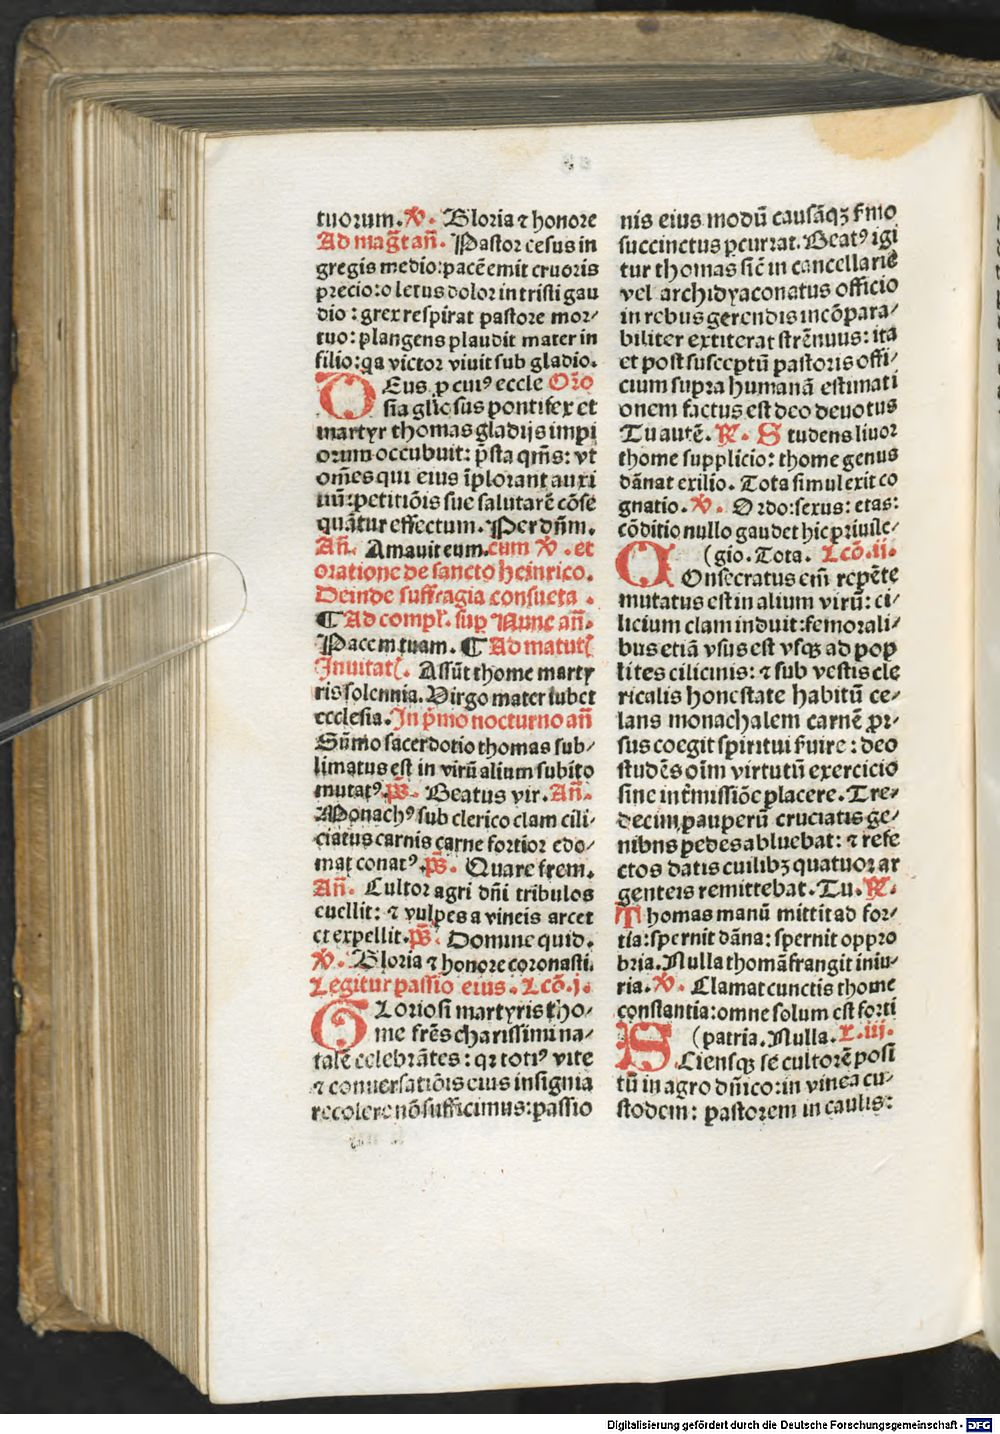 tuorum. ℣. Gloria ⁊ honore
Ad mag̃t añ. Pastor cesus in
gregis medio: pacē emit cruoris
precio: o letus dolor in tristi gau
dio : grex respirat pastore mor⸗
tuo: plangens plaudit mater in
filio: qa victor viuit sub gladio.
DEus ꝓ cuiꝰ eccle Or̃o
sia gl̃ie sus pontifex et
martyr thomas gladijs impi
orum occubuit: p̃sta qm̃s: vt
om̃es qui eius īplorant auxi
liū: petitiōis sue salutarē cōse
quāntur effectum. Per dñm.
Añ. Amauit eum. cum ℣. et
oratione de sancto heinrico.
Deinde suffragia consueta .
¶ Ad compl̃. sup Nunc añ.
Pacem tuam. ¶ Ad matut̃
Inuitat̃. Assūt thome marty
ris solennia. Virgo mater iubet
ecclesia. In p̃mo nocturno añ
Sūmo sacerdotio thomas sub⸗
limatus est in virū alium subito
mutatꝰ. p̃s. Beatus vir. Añ.
Monachꝰ sub clerico clam cili⸗
ciatus carnis carne fortior edo⸗
mat conatꝰ. p̃s. Quare frem.
Añ. Cultor agri dñi tribulos
euellit: ⁊ vulpes a vineis arcet
et expellit. p̃s. Domine quid.
℣. Gloria ⁊ honore coronasti.
Legitur passio eius. Lcō. j.
GLoriosi martyris tho⸗
me fr̃es charissimi na⸗
talē celebrātes: qꝛ totiꝰ vite
⁊ conuersatiōis eius insignia
recolere nō sufficimus: passio
nis eius modū causāqꝫ s̃mo
succinctus ꝑcurrat. Beatꝰ igi
tur thomas sic̄ in cancellarie
vel archidyaconatus officio
in rebus gerendis incōpara⸗
biliter extiterat strēnuus: ita
et post susceptū pastoris offi⸗
cium supra humanā estimati
onem factus est deo deuotus
Tu autē. ℟. Studens liuor
thome supplicio: thome genus
dānat exilio. Tota simul exit co
gnatio. ℣. Ordo: sexus: etas:
cōditio nullo gaudet hic priuile⸗
(gio. Tota. Lcō. ij.
COnsecratus em̄ repēte
mutatus est in alium virū: ci⸗
licium clam induit: femorali⸗
bus etiā vsus est vsqꝫ ad pop
lites cilicinis: ⁊ sub vestis cle
ricalis honestate habitū ce⸗
lans monachalem carnē ꝓr⸗
sus coegit spiritui s̃uire : deo
studēs oīm virtutū exercicio
sine int̃missiōe placere. Tre⸗
decim pauperū cruciatis ge⸗
nibns pedes abluebat: ⁊ refe
ctos datis cuilibꝫ quatuor ar
genteis remittebat. Tu. ℟.
Thomas manū mittit ad for⸗
tia: spernit dāna: spernit oppro
bria. Nulla thomā frangit iniu⸗
ria. ℣. Clamat cunctis thome
constantia: omne solum est forti
(patria. Nulla. L. iij.
SCiensqꝫ se cultorē posi
tū in agro dñico: in vinea cu⸗
stodem: pastorem in caulis:
Digitalisierung gefördert durch die Deutsche Forschungsgemeinschaft - DFG